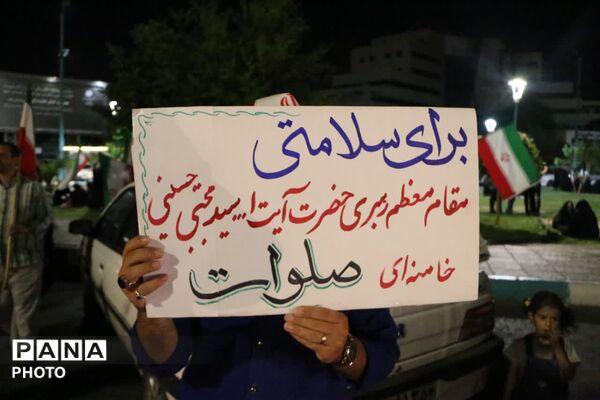 برای سلامتی
مقام معظم رهبری حضرت آیت ا... سید مجتبی حسینی
خامنه‌ای
صلوات
PANA
PHOTO